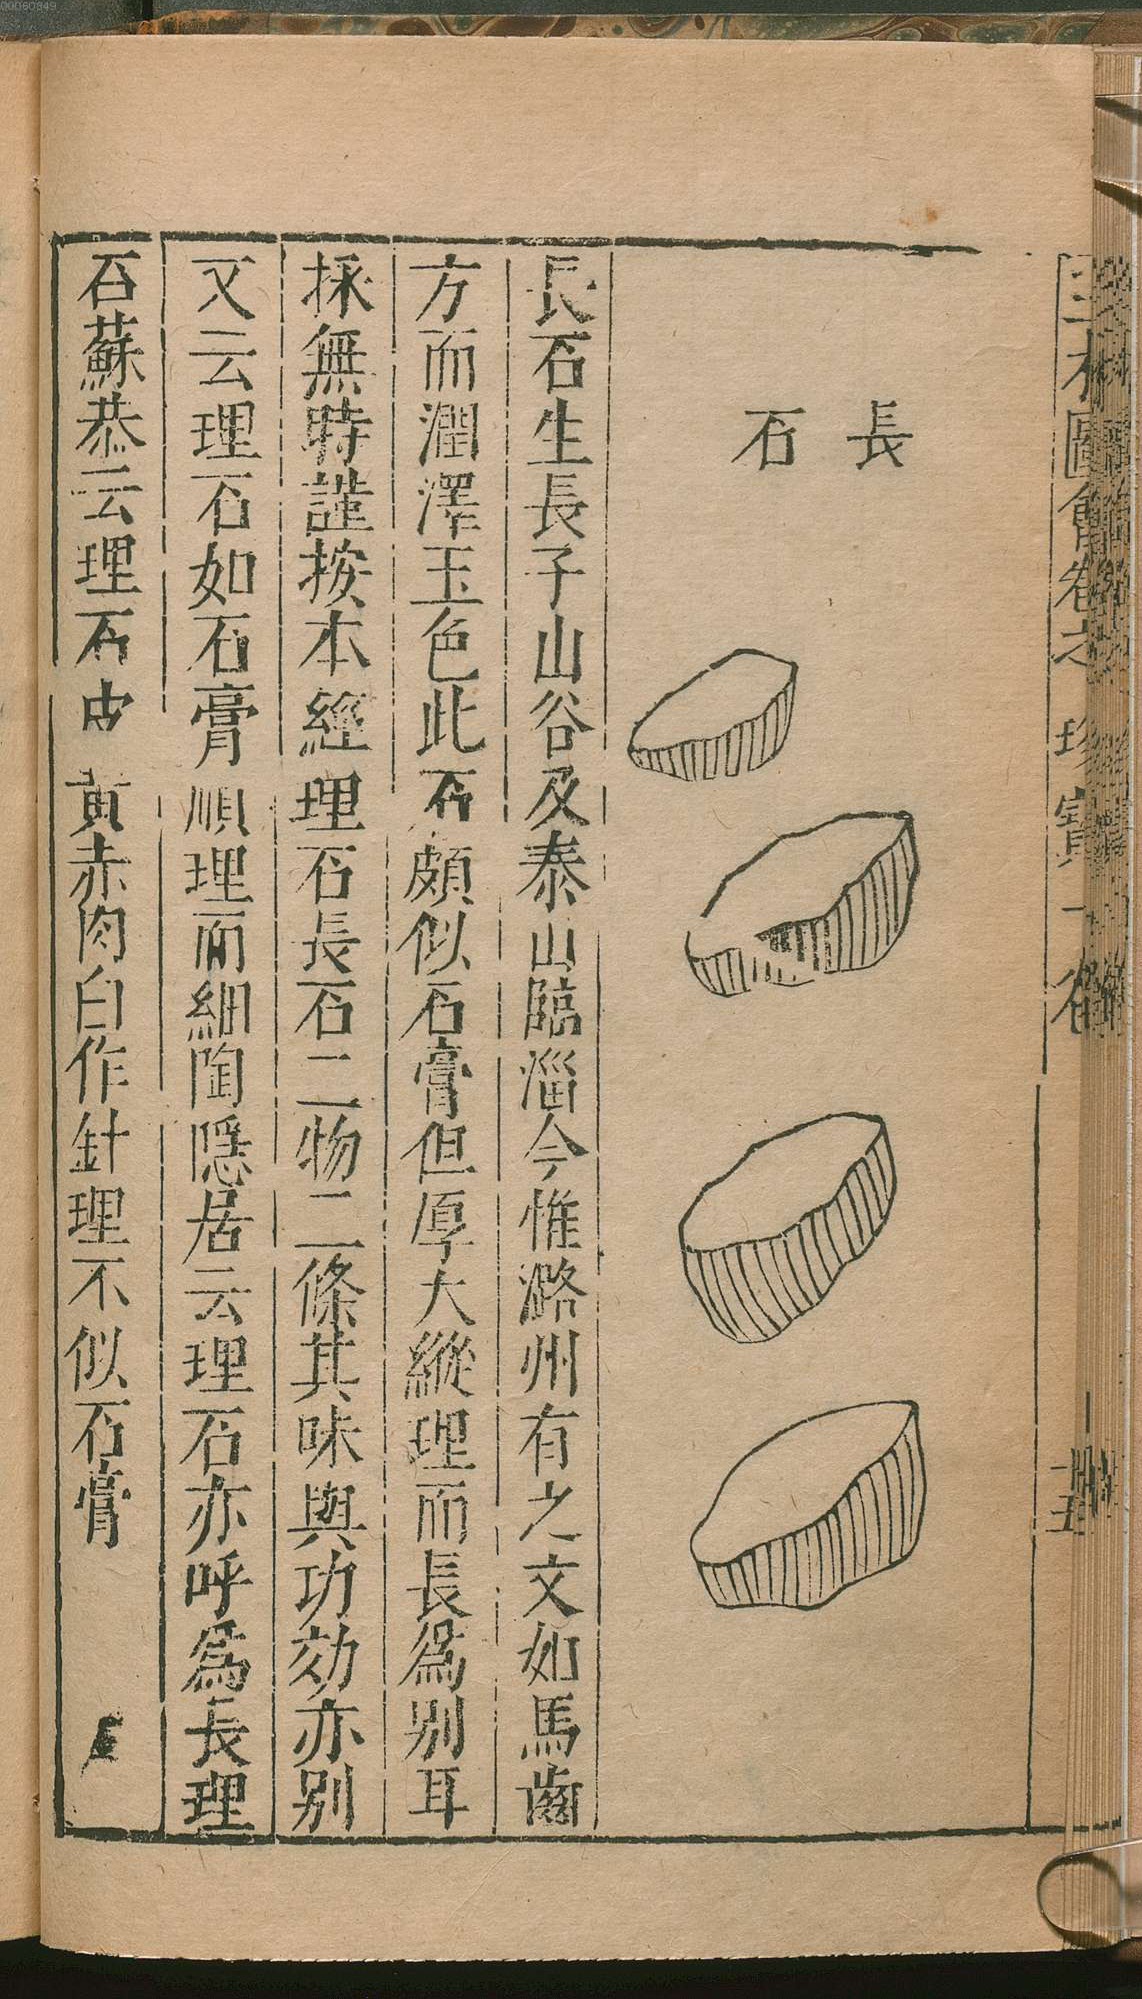 長石
長石生長子山谷及泰山臨淄今惟潞州有之文如馬齒
方而潤澤玉色此石頗似石膏但厚大縱理而長爲別耳
採無時謹按本經理石長石二物二條其味與功効亦別
又云理石如石膏順理而細陶隱居云理石亦呼爲長理
石蘇恭云理石皮黄赤肉白作針理不似石膏
圖會卷之 珍寶一卷
十五
00060349